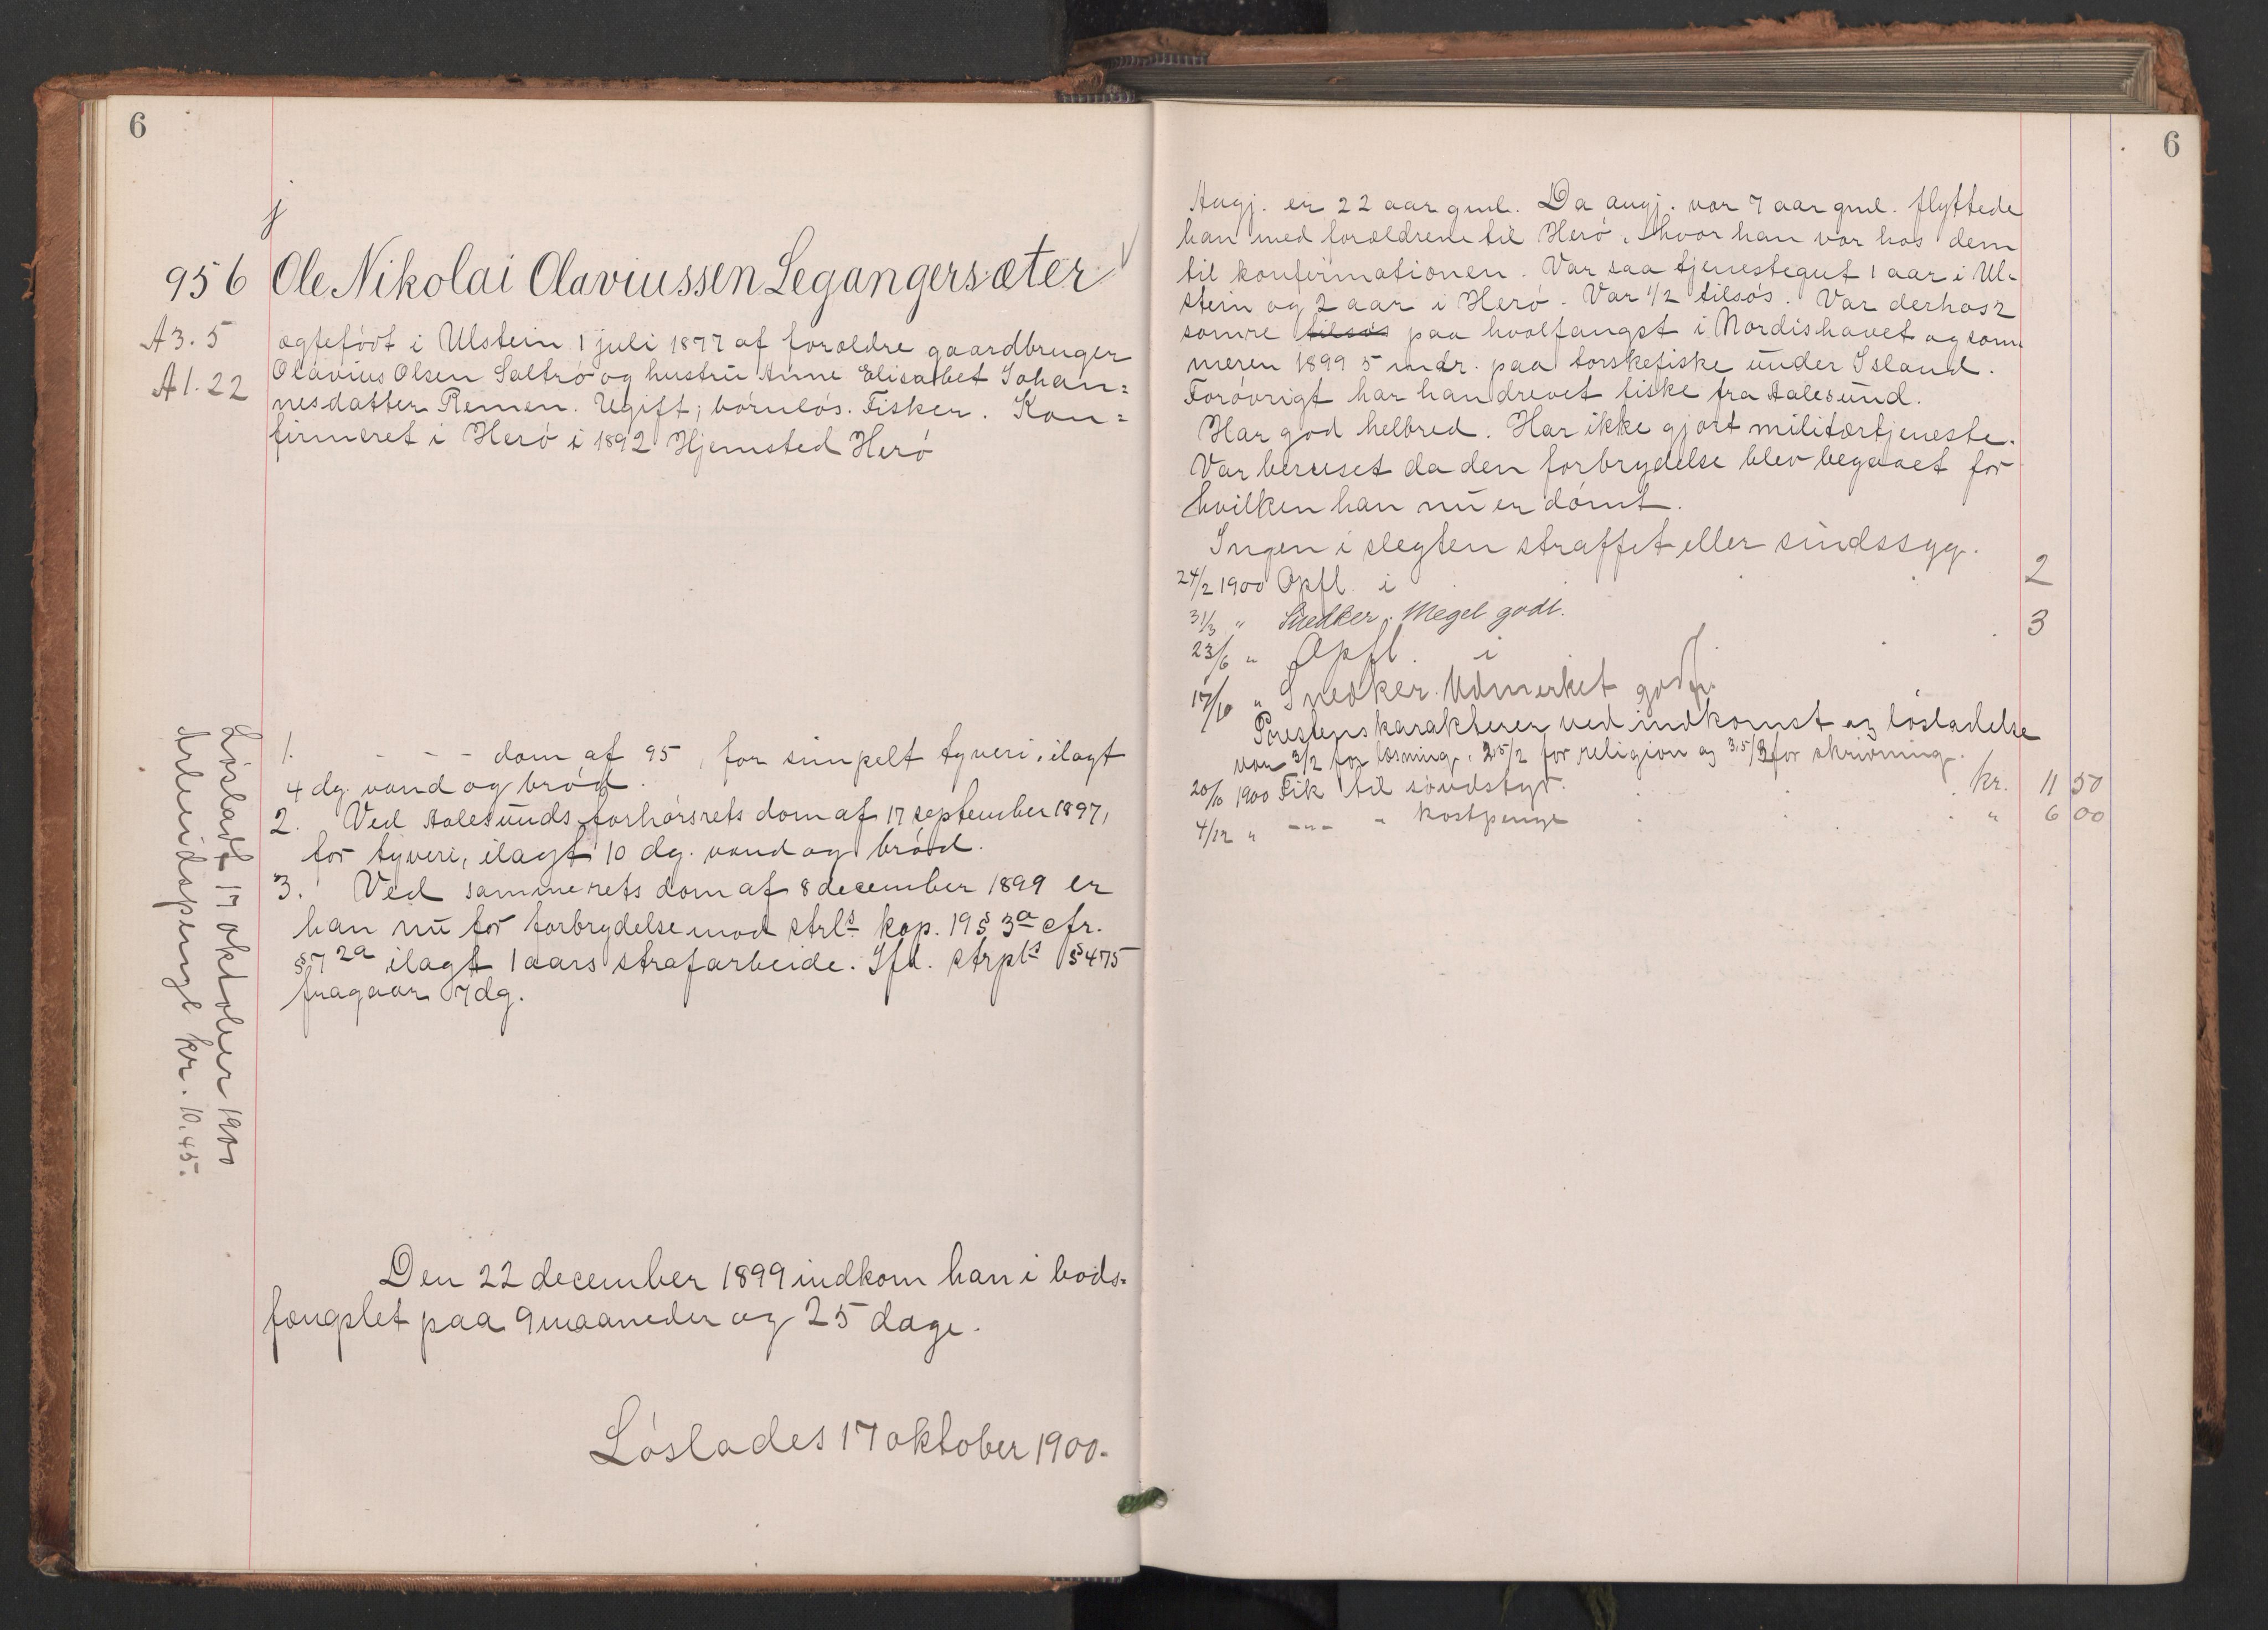 6
956 Ole Nikolai Olaviussen Legangersæter
A3.5
A1.22
ægtefödt i Ulstein 1 juli 1877 af foræLdre gaardbruger
Olavius Olsen Saltrö og hustru Anne Elisabet Johan=
nesdatter Remen. Ugift; börnlös. Fisker. Kon=
firmeret i Herö i 1892 Hjemsted Herö
1. - - - dom af 95, for simpelt tyveri, ilagt
4 dg. vand og bröd.
2. Ved Aalesunds forhörsrets dom af 17 september 1897,
for tyveri, ilagt 10 dg. vand og bröd.
3. Ved samme rets dom af 8 december 1899 er
han nu for forbrydelse mod strls kap. 19 § 3a cfr.
§ 7 2a ilagt 1 aars strafarbeide. Ifl. strpls § 475
fragaar 7 dg.
Lösladt 17 oktober 1900
Arbeidspenge kr. 10.45.
Den 22 december 1899 indkom han i bods-
fængslet paa 9 maaneder og 25 dage.
Löslades 17 oktober 1900.
6
Angj. er 22 aar gml. Da angj. var 7 aar gml. flyttede
han med forældrene til Herö, hvor han var hos dem
til konfirmationen. Var saa tjenestegut 1 aar i Ul-
stein og 2 aar i Herö. Var 1/2 tilsös. Var derhos 2
somre tilsös paa hvalfangst i Nordishavet og som-
meren 1899 5 mdr. paa torskefiske under Island.
Forövrigt har han drevet fiske fra Aalesund.
Har god helbred. Har ikke gjort militærtjeneste.
Var beruset da den forbrydelse blev begaaet for
hvilken han nu er dömt.
Ingen i slegten straffet eller sindssyg.
24/2 1900 Opfl. i 2
31/3 " Snedker. Meget godt.
23/6 " Opfl. i 3
17/10 " Snedker. Udmerket godt.
Prestens karakterer ved indkomst og lösladelse
var 3/2 for læsning, 2,5/2 for religion og 3,5/3 for skrivning.
20/10 1900 Fik til söudstyr. kr. 11 50
4/12 " -"- " kostpenge " 6 00